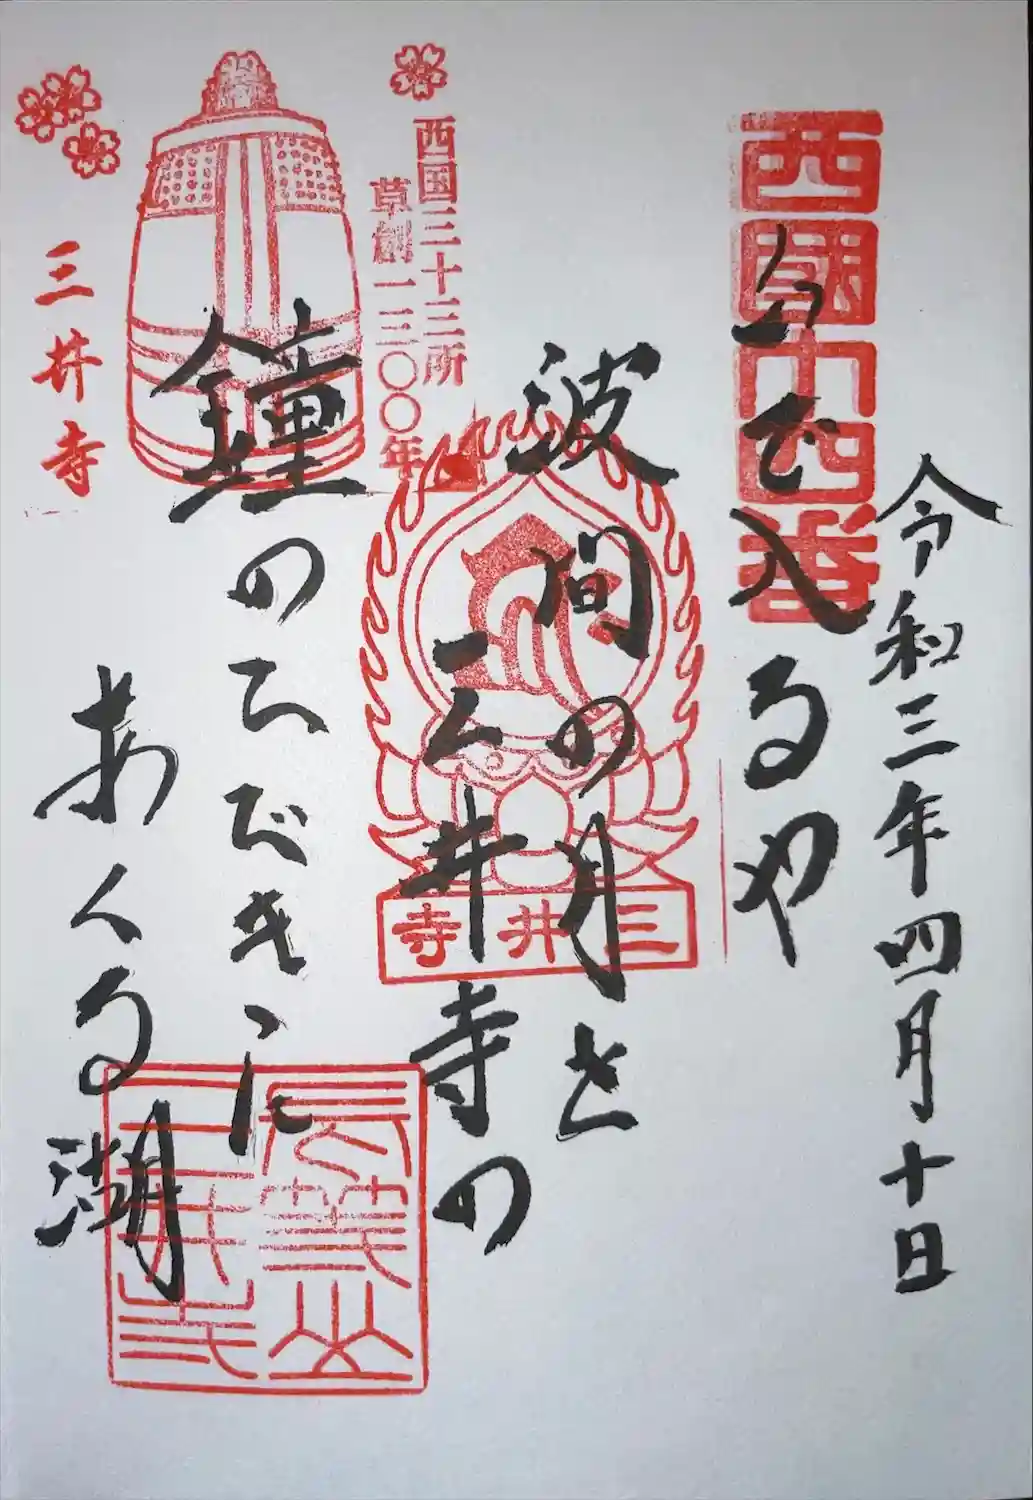 令和三年四月十日
西國十四番
いで入るや
波間の月を
三井寺の
鐘のひびきに
あくる湖
西国三十三所
草創一三〇〇年
三井寺
三井寺
長等山
三井寺